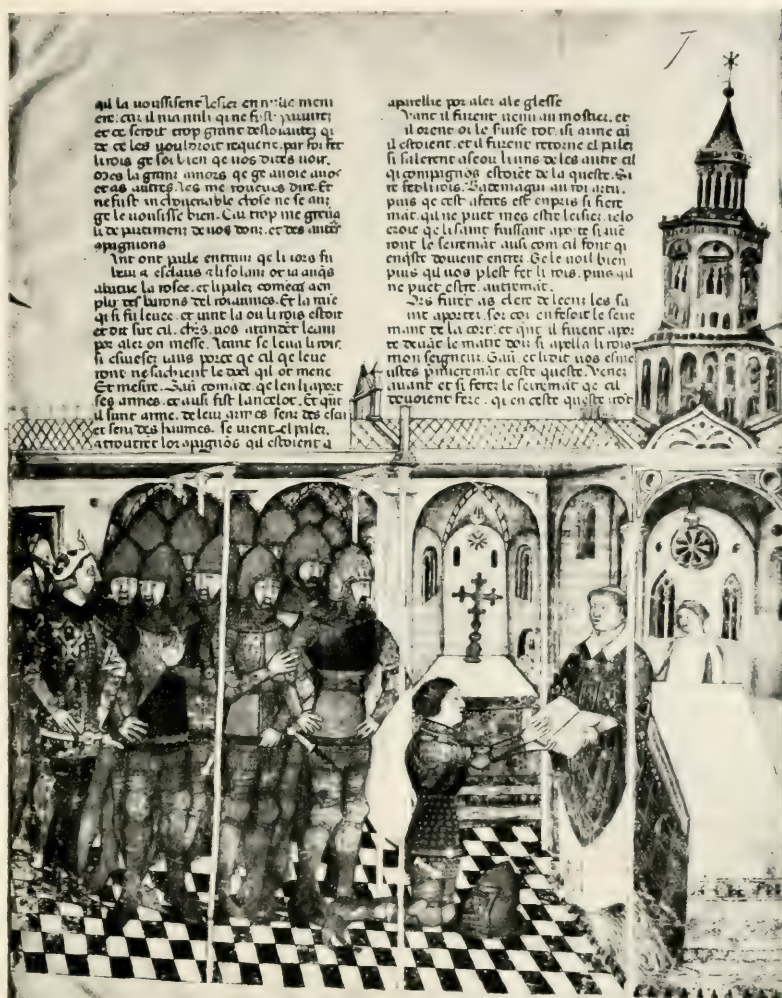 qil la uoussisent lesier en nule meni
ere: car il ma nuli qi ne fust
et ce seroit trop grant desloiautez qi
de ce les uouldroit requerre. par foi fet
li rois ge soi bien qe uos dites uoir.
mes la grant amors qe ge auoie a uos
et as autres. les me dire. Et
ne fust chose ne se an
ge le uousisse bien. Car trop me greua
li de partiment de uos dont. et des autres
apignions
Tant ont parle entrum qe li iors fu
leua esclaus a li solanz or ia auqs
abatue la rosee. et li pales comeca aen
plir des barons del roiaumes. Et la
qi si fu leuee. et uint la ou li rois estoit
et dit sire cil. chrs. uos atandet leanz
por aler on messe. se leua li rois.
si esuese uans porce qe cil qe leue
ront ne sachient le duel qil ot mene
Et mesire. Gaui comade. qe len li aport
ses armes. et ausi fist lancelot. Et qnt
il sunt arme. de leur armes senz des escu
et senz des haumes. se uient el pales.
a trouuret lor apignos qil estoient a
aparellie por aler ale glesse
Qant il furent uenu au mostier. et
il orent oi le suise tot. isi arme ai
il estoient. et il furent retorne el pales
si salerent aseou li uns deles autre cil
qi compignos estoiet de la queste. Si
re fet li rois. Bacemagu au roi artu.
puis qe cest aferes est enpris si fiere
mat. qil ne puet mes estre lessiez. ielo
croie qe li saint fuissant aporte si iue
ront le seiremat ausi com cil font qi
en qste douient entrer. Ge le uoil bien
puis qil uos plest fet li rois. puis qil
ne puet estre. autremat.
as clers de leenz les sa
inz aporter. sor coi en fesoit le seire
mant de la cort. et qnt il furent apor
te deuat le maitre dois si apella li rois
mon seigneur. Gaui. et li dit uos esme
ustes primeremat ceste queste. Venez
auant et si feres le seiremat qe cil
deuoient fere. qi en ceste queste